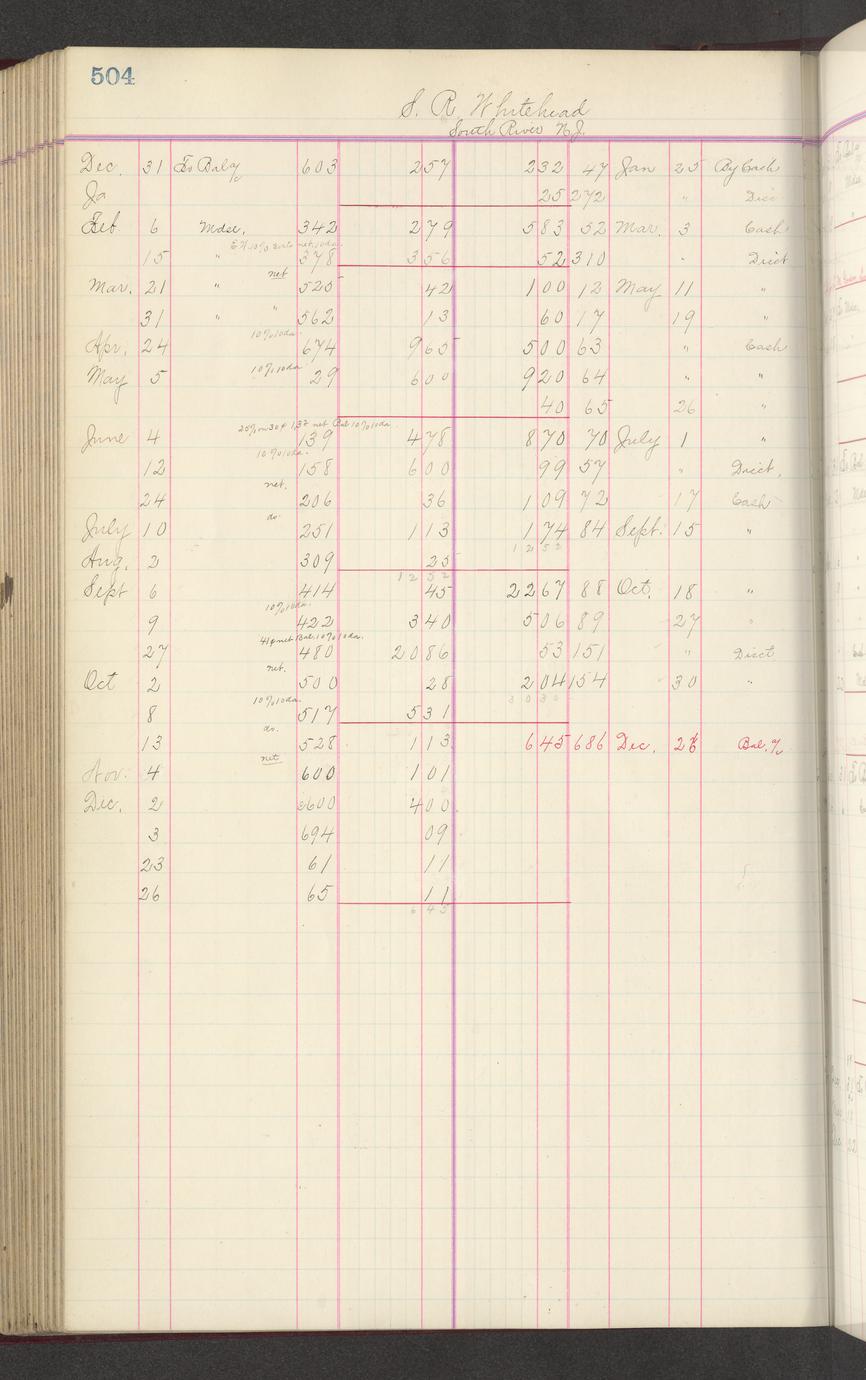 504
S. R. Whitehead
South River N.J.
Dec. 31 To Bal 603 257 232 47 Jan 25 By Cash
Ja 25 272 " Disc
Feb. 6 Mdse. 342 279 583 52 Mar. 3 Cash
net 10 da.
15 " 378 356 52 310 " Disct
net
Mar. 21 " 525 42 100 12 May 11 "
31 " " 562 13 60 17 19 "
10% 10 da.
Apr. 24 674 965 500 63 " Cash
10% 10 da
May 5 29 600 920 64 " "
40 65 26 "
25% on 30 & 132 net Bal 10% 10 da.
June 4 139 478 870 70 July 1 "
10% 10 da.
12 158 600 99 57 " Disct.
net.
24 206 36 109 72 17 Cash
do.
July 10 251 113 174 84 Sept. 15 "
1252
Aug. 2 309 25
1252
Sept 6 414 45 2267 88 Oct. 18 "
10% 10 da.
9 422 340 506 89 27 "
net Bal. 10% 10 da.
27 480 2086 53 151 " Disct
net.
Oct 2 500 28 204 154 30 "
3030
10% 10 da.
8 517 531
do.
13 528 113 645 686 Dec. 26 Bal. %
net
Nov. 4 600 101
Dec. 2 600 400
3 694 09
23 61 11
26 65 11
645